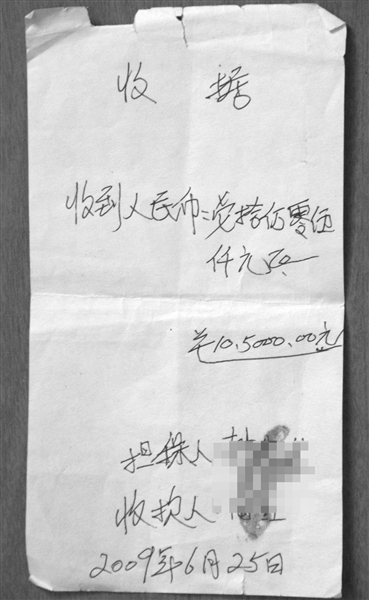 收据
收到人民币:壹拾万零伍
仟元正
¥10.5000.00元
担保人
收款人
2009年6月25日